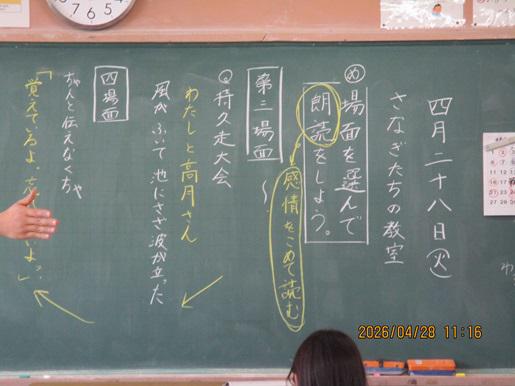 四月二十八日(火)
さなぎたちの教室
め 場面を選んで
朗読をしよう。
感情をこめて読む
第三場面～
持久走大会
わたしと高月さん
風がふいて池にさざ波が立った
四場面
ちゃんと伝えなくちゃ
「覚えているよ
いよ。」
2026/04/28 11:16